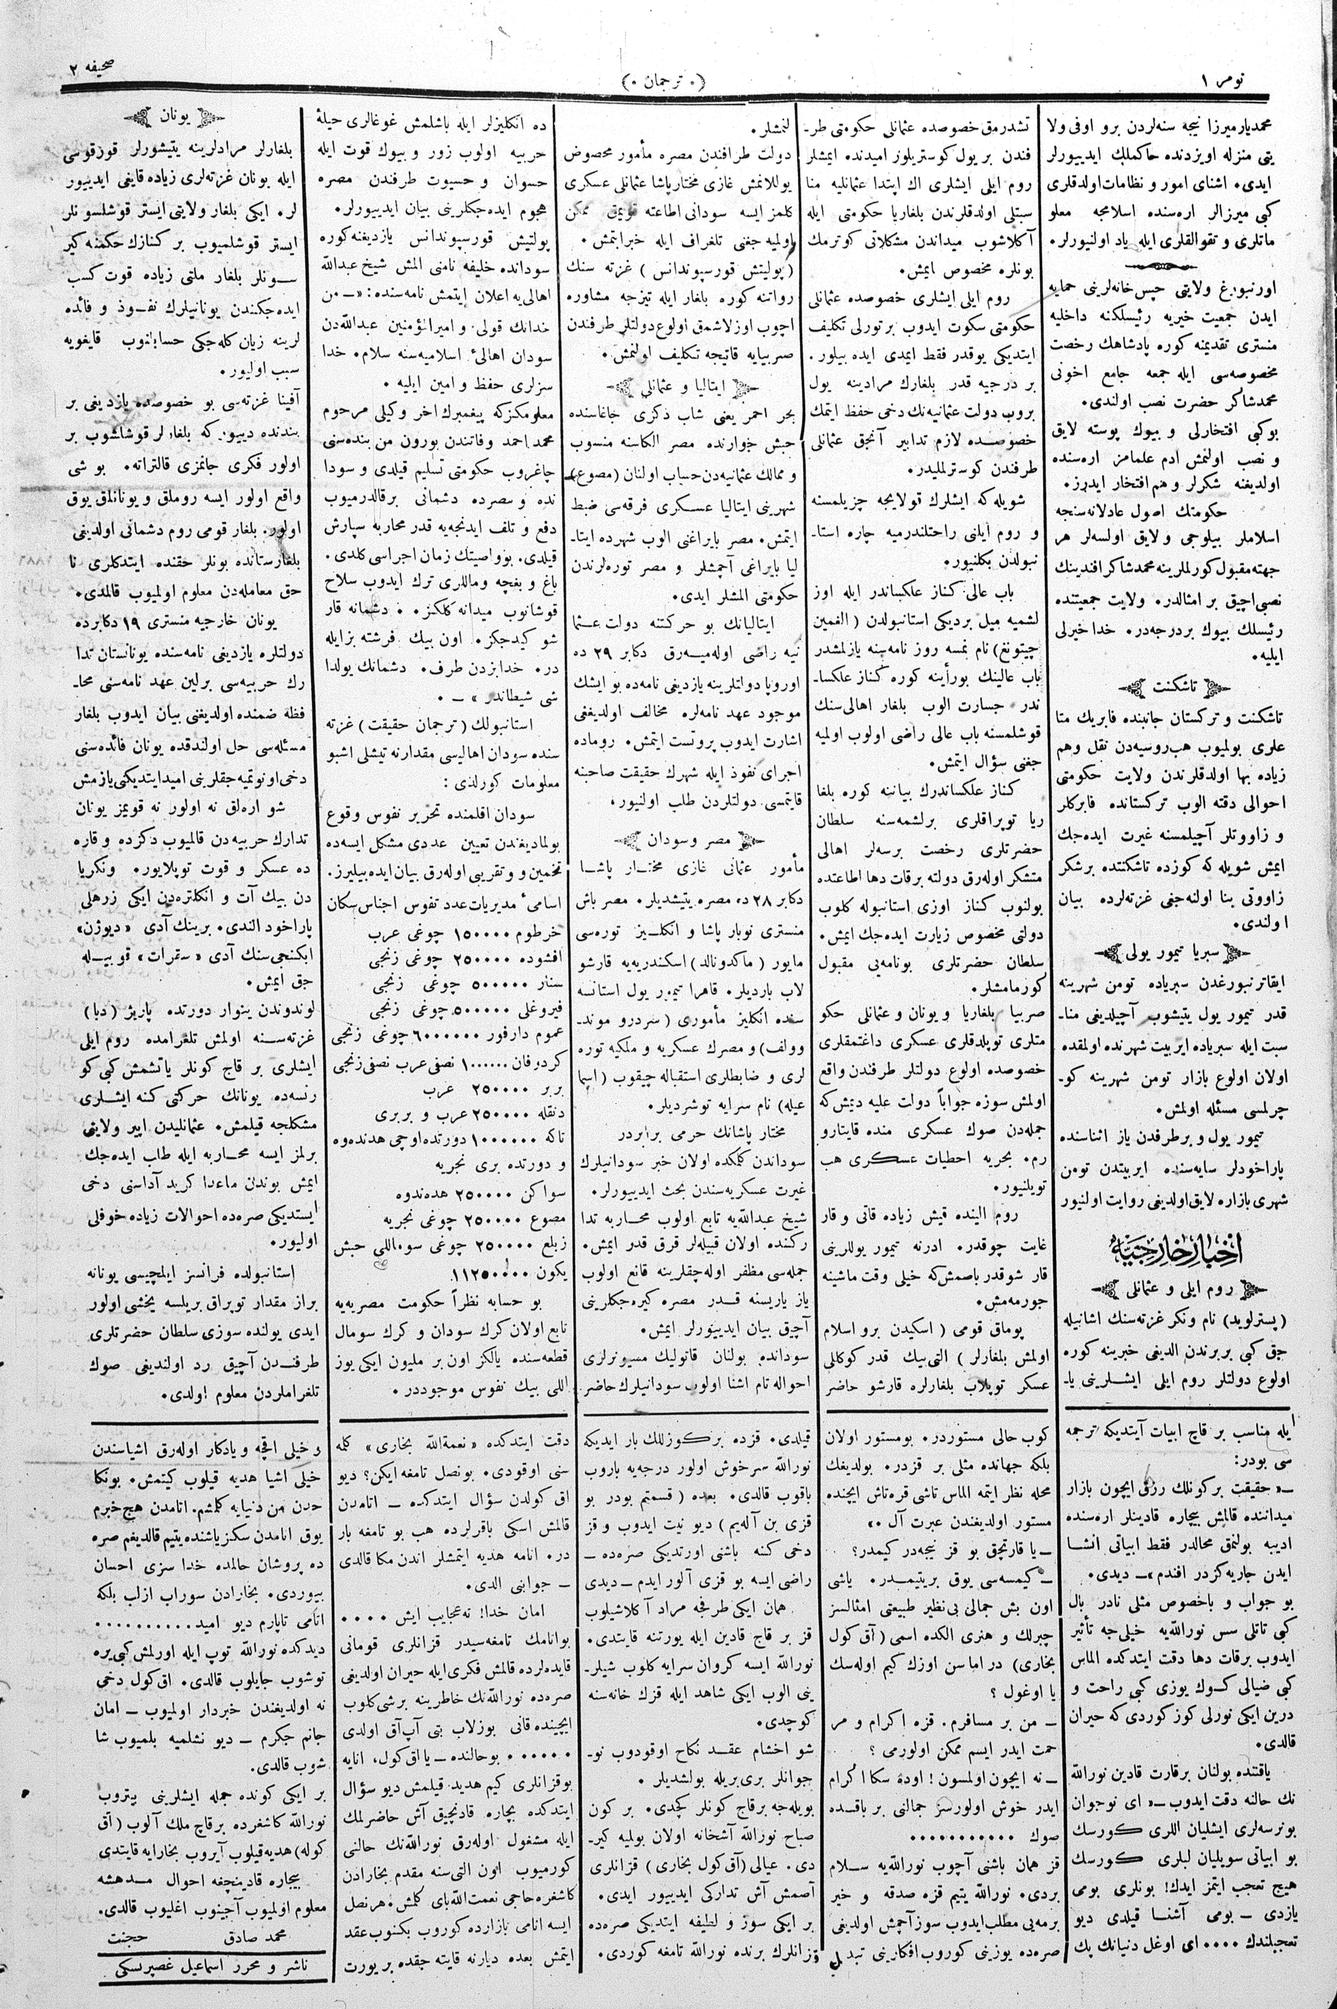 نومر ١
(• ترجمان •)
صحیفه ٢
محمدیار میرزا نیجه سنه‌لردن برو اوفی ولا
یتی منزله اویزدنده حاکملك ایدییورلر
ایدی. اشنای امور و نظامات اولدقلری
کبی میرزالر اره‌سنده اسلامجه معلو
ماتلری و تقوالقلری ایله یاد اولنیورلر.
اورنبورغ ولایتی حبس خانه‌لرینی حمایه
ایدن جمعیت خیریه رئیسلکنه داخلیه
منستری تقدیمنه کوره پادشاهك رخصت
مخصوصه‌سی ایله جمعه جامع اخونی
محمدشاکر حضرت نصب اولندی.
بوکبی افتخارلی و بیوك پوسته لایق
و نصب اولنمش ادم علمامز اره‌سنده
اولدیغنه شکرلر و هم افتخار ایدرز.
حکومتك اصول عادلانه‌سنجه
اسلاملر بیلوجی و لایق اولسه‌لر هر
جهته مقبول کورلملرینه محمدشاکر افندینك
نصبی اچیق بر امثالدر. ولایت جمعیتنده
رئیسلك بیوك بر درجه‌در. خدا خیرلی
ایلیه.
تاشکنت
تاشکنت و ترکستان جانبنده فابریك متا
علری بولمیوب هب روسیه‌دن نقل وهم
زیاده بها اولدقلرندن ولایت حکومتی
احوالی دقته الوب ترکستانده فابرکلر
و زاووتلر آچیلمسنه غیرت ایده‌جك
ایمش شویله که کوزده تاشکنتده برشکر
زاووتی بنا اولنه‌جغی غزته‌لرده بیان
اولندی.
سبریا تیمور یولی
ایقاترنبورغدن سبریاده تومن شهرینه
قدر تیمور یول یتیشوب آچیلدیغی منا-
سبت ایله سبریاده ایربیت شهرنده اولمقده
اولان اولوغ بازار تومن شهرینه کو-
چرلمسی مسئله اولمش.
تیمور یول و برطرفدن یاز اثناسنده
پاراخودلر سایه‌سنده ایربیتدن تومن
شهری بازاره لایق اولدیغی روایت اولنیور
اخبار خارجیه
روم ایلی و عثمانلی
(پسترلوید) نام ونکر غزته‌سنك اشانیله
جق کبی بر یردن الدیغی خبرینه کوره
اولوغ دولتلر روم ایلی ایشلرینی یا-
تشدرمق خصوصده عثمانلی حکومتی طر-
فندن بر یول کوستریلوز امیدنده ایمشلر
روم ایلی ایشلری اك اپتدا عثمانلیه منا
سبتلی اولدقلرندن بلغاریا حکومتی ایله
آکلاشوب میداندن مشکلاتی کوترمك
بونلره مخصوص ایمش.
روم ایلی ایشلری خصوصده عثمانلی
حکومتی سکوت ایدوب برتورلی تکلیف
ایتدیکی یوقدر فقط ایمدی ایده بیلور.
بر درجیه قدر بلغارك مرادینه یول
بروب دولت عثمانیه‌نك دخی حفظ ایتمك
خصوصده لازم تدابیر آنجق عثمانلی
طرفندن کوسترلملیدر.
شویله که ایشلرك قولایجه چزیلمسنه
و روم ایلنی راحتلندرمیه چاره استا-
نبولدن بکلنیور.
باب عالی کناز علکساندر ایله اوز
لشمیه میل بردیکی استانبولدن (الغمین
چیتونغ) نام نمسه روز نامه‌ینه یازلمشدر
باب عالینك بورأینه کوره کناز علکسا-
ندر جسارت الوب بلغار اهالی‌سنك
قوشلمسنه باب عالی راضی اولوب اولمیه
جغی سؤال ایتمش.
کناز علکساندرك بیاننه کوره بلغا
ریا توپراقلری برلشمه‌سنه سلطان
حضرتلری رخصت برسه‌لر اهالی
متشکر اوله‌رق دولته برقات دها اطاعتده
بولنوب کناز اوزی استانبوله کلوب
دولتی مخصوص زیارت ایده‌جك ایمش.
سلطان حضرتلری بونامه‌یی مقبول
کورمامشلر.
صربیا بلغاریا و یونان و عثمانلی حکو
متلری توپلدقلری عسکری داغتمقلری
خصوصده اولوغ دولتلر طرفندن واقع
اولمش سوزه جواباً دولت علیه دیمش که
جمله‌دن صوك عسکری منده قایتارو
رم. بحریه احطیات عسکری هب
توپلنیور.
روم الینده قیش زیاده قاتی و قار
غایت چوقدر. ادرنه تیمور یوللرینی
قار شوقدر باصمش که خیلی وقت ماشینه
جورمه‌مش.
پوماق قومی (اسکیدن برو اسلام
اولمش بلغارلر) التی‌بیك قدر کوکالی
عسکر توپلاب بلغارلره قارشو حاضر
لنمشلر.
دولت طرافندن مصره مأمور مخصوص
یوللانمش غازی مختارپاشا عثمانلی عسکری
کلمز ایسه سودانی اطاعته قویمق ممکن
اولمیه جغنی تلغراف ایله خبرایتمش.
(پولیتش قورسپوندانس) غزته سنك
رواتنه کوره بلغار ایله تیزجه مشاوره
اچوب اوزلاشمق اولوغ دولتلر طرفندن
صربیایه قاتیجه تکلیف اولنمش.
ایتالیا و عثمانلی
بحر احمر یعنی شاب دکزی جاغاسنده
حبش جوارنده مصر الکاسنه منسوب
و ممالك عثمانیه‌دن حساب اولنان (مصوع)
شهرینی ایتالیا عسکری فرقه‌سی ضبط
ایتمش. مصر بایراغنی الوب شهرده ایتا-
لیا بایراغی آچمشلر و مصر توره‌لرندن
حکومتی المشلر ایدی.
ایتالیانك بو حرکتنه دولت عثما
نیه راضی اوله‌میه‌رق دکابر ٢٩ ده
اوروپا دولتلرینه یازدیغی نامه‌ده بو ایشك
موجود عهد نامه‌لره مخالف اولدیغنی
اشارت ایدوب پروتست ایتمش. روماده
اجرای نفوذ ایله شهرك حقیقت صاحبنه
قایتمسی دولتلردن طلب اولنیور.
مصر و سودان
مأمور عثمانی غازی مختار پاشا
دکابر ٢٨ ده مصره یتیشدیلر. مصر باش
منستری نوبار پاشا و انکلیز توره‌سی
مایور (ماکدونالد) اسکندریه‌یه قارشو
لاب باردیلر. قاهرا تیمور یول استانسه
سنده انکلیز مأموری (سردرو موند-
وولف) و مصرك عسکریه و ملکیه توره
لری و ضابطلری استقباله چیقوب (اسما
عیله) نام سرایه توشردیلر.
مختار پاشانك حرمی برابردر
سوداندن کلمکده اولان خبر سودانیلرك
غیرت عسکریه‌سندن بحث ایدییورلر.
شیخ عبدالله‌یه تابع اولوب محاربه تدا
رکنده اولان قبیله‌لر قرق قدر ایمش.
جمله‌سی مظفر اوله‌جقلرینه قانع اولوب
یاز یاریسنه قدر مصره کیره‌جکلرینی
آچیق بیان ایدییورلر ایمش.
سودانده بولنان قاتولیك مسیونرلری
احواله تام اشنا اولوب سودانیلرك حاضر
ده انکلیزلر ایله باشلمش غوغالری حیلهٔ
حربیه اولوب زور و بیوك قوت ایله
حسوان و حسیوت طرفندن مصره
هجوم ایده‌جکلرینی بیان ایدییورلر.
پولتیش قورسپوندانس یازدیغنه کوره
سودانده خلیفه نامنی المش شیخ عبدالله
اهالی‌یه اعلان ایتمش نامه‌سنده: «- من
خدانك قولی و امیرالمؤمنین عبدالله‌دن
سودان اهالیٔ اسلامیه‌سنه سلام. خدا
سزلری حفظ و امین ایلیه.
معلومکزکه پیغمبرك اخر وکیلی مرحوم
محمد احمد وفاتندن بورون من بنده‌سنی
چاغروب حکومتی تسلیم قیلدی و سودا
نده و مصرده دشمانی برقالدرمیوب
دفع و تلف ایدنجه‌یه قدر محاربه سپارش
قیلدی. بوزواصیتك زمان اجراسی کلدی.
باغ و بغچه و ماللری ترك ایدوب سلاح
قوشانوب میدانه کلکز. دشمانه قار
شو کیدجکز. اون بیك فرشته بزایله
در. خدابزدن طرف. دشمانك یولدا
شی شیطاندر» -.
استانبولك (ترجمان حقیقت) غزته
سنده سودان اهالیسی مقدارنه تیشلی اشبو
معلومات کورلدی:
سودان اقلمنده تحریر نفوس وقوع
بولمادیغندن تعیین عددی مشکل ایسه‌ده
تخمین و تقریبی اوله‌رق بیان ایده بیلیرز.
اسامیٔ مدیریات عدد تفوس اجناس سکان
خرطوم ١٥٠٠٠٠ چوغی عرب
افشوده ٢٥٠٠٠٠ چوغی زنجی
سنار ٥٠٠٠٠٠ چوغی زنجی
فیروغلی ٥٠٠٠٠٠ چوغی زنجی
عموم دارفور ٦٠٠٠٠٠٠ چوغی زنجی
کردوفان ١٠٠٠٠٠٠ نصفی عرب نصفی زنجی
بربر ٢٥٠٠٠٠ عرب
دنقله ٢٥٠٠٠٠ عرب و بربری
تاکه ١٠٠٠٠٠٠ دورتده‌اوچی هدندوه
و دورتده بری نجریه
سواکن ٢٥٠٠٠٠ هده‌ندوه
مصوع ٢٥٠٠٠٠ چوغی نجریه
زیلع ٢٥٠٠٠٠ چوغی سومالی حبش
یکون ١١٢٥٠٠٠٠
بو حسابه نظراً حکومت مصریه‌یه
تابع اولان کرك سودان و کرك سومال
قطعه‌سنده یالکز اون بر ملیون ایکی یوز
اللی بیك نفوس موجوددر.
یونان
بلغارلر مرادلرینه یتیشورلر قورقوسی
ایله یونان غزته‌لری زیاده قایغی ایدییور
لر. ایکی بلغار ولایتی ایستر قوشلسونلر
ایستر قوشلمیوب بر کنازك حکمنه کیر
سونلر بلغار ملتی زیاده قوت کسب
ایده‌جکندن یونانیلرك نفوذ و فائده
لرینه زیان کله‌جکی حسابلنوب قایغویه
سبب اولیور.
آفینا غزته‌سی بو خصوصده یازدیغی بر
بندنده دییور که بلغارلر قوشاشوب بر
اولور فکری جانمزی قالتراته. بو شی
واقع اولور ایسه روملق و یونانلق یوق
اولور. بلغار قومی روم دشمانی اولدیغی
بلغارستانده بونلر حقنده ایتدکلری نا
حق معامله‌دن معلوم اولمیوب قالمدی.
یونان خارجیه منستری ١٩ دکابرده
دولتلره یازدیغی نامه‌سنده یونانستان تدا
رك حربیه‌سی برلین عهد نامه‌سنی محا-
فظه ضمنده اولدیغنی بیان ایدوب بلغار
مسئله‌سی حل اولندقده یونان فائده‌سنی
دخی اونوتمیه‌جقلرینی امیدایتدیکی یازمش
شو اره‌لق نه اولور نه قویمز یونان
تدارك حربیه‌دن قالمیوب دکزده و قاره
ده عسکر و قوت توپلایور. ونکریا
دن بیك آت و انکلتره‌دن ایکی زرهلی
پاراخود الندی. برینك آدی «دیوژن»
ایکنجی‌سنك آدی «سقرات» قویله
جق ایمش.
لوندوندن ینوار دورتده پاریژ (دبا)
غزته‌سنه اولمش تلغرامده روم ایلی
ایشلری بر قاچ کونلر یاتشمش کبی کو
رنسه‌ده یونانك حرکتی کنه ایشلری
مشکلجه قیلمش. عثمانلیدن اپیر ولایتی
برلمز ایسه محاربه ایله طلب ایده‌جك
ایمش بوندن ماعدا کرید آداسنی دخی
ایستدیکی صره‌ده احوالات زیاده خوفلی
اولیور.
استانبولده فرانسز ایلچیسی یونانه
براز مقدار توپراق بریلسه یخشی اولور
ایدی یولنده سوزی سلطان حضرتلری
طرفندن آچیق رد اولندیغی صوك
تلغراملردن معلوم اولدی.
ایله مناسب بر قاچ ابیات آیتدیکه ترجمه
سی بودر:
-« حقیقت برکونلك رزقی ایچون بازار
میداننده قالمش بیچاره قادینلر اره‌سنده
ادیبه بولنمق محالدر فقط ابیاتی انشا
ایدن جاریه کردر افندم»- دیدی.
بو جواب و باخصوص مثلی نادر بال
کبی تاتلی سس نورالله‌یه خیلی‌جه تأثیر
ایدوب برقات دها دقت ایتدکده الماس
کبی ضیالی کوك یوزی کبی راحت و
درین ایکی نورلی کوز کوردی که حیران
قالدی.
یاقتنده بولنان برقارت قادین نورالله
نك حالنه دقت ایدوب -« ای نوجوان
بونرسه‌لری ایشلیان اللری کورسك
بو ابیاتی سویلیان لبلری کورسك
هیچ تعجب ایتمز ایدك! بونلری بومی
یازدی - بومی آشنا قیلدی دیو
تعجبلندك .... ای اوغل دنیانك پك
کوب حالی مستوردر. بومستور اولان
بلکه جهانده مثلی بر قزدر. بولدیغك
محله نظر ایتمه الماس تاشی قره‌تاش ایچنده
مستور اولدیغندن عبرت آل.»
- یا قارتجق بو قز نیجه‌در کیمدر؟
- کیمسه‌سی یوق بریتیمدر. یاشی
اون بش جمالی بی‌نظیر طبیعتی امثالسز
چبرلك و هنری الکده اسمی (آق کول
بخاری) در اماسن اوزك کیم اوله‌سك
یا اوغول؟
- من بر مسافرم. قزه اکرام و مر
حمت ایدر ایسم ممکن اولورمی؟
- نه ایچون اولمسون! اوده سکا اکرام
ایدر خوش اولورسز جمالنی بر باقسده
صوك ...........
قز همان باشنی آچوب نورالله‌یه سلام
بردی. نورالله یتیم قزه صدقه و خیر
برمه‌یی مطلب ایدوب سوز آچمش اولدیغی
صره‌ده یوزینی کوروب افکارینی تبدیل
قیلدی. قزده برکوزللك بار ایدیکه
نورالله سرخوش اولور درجه‌یه باروب
باقوب قالدی. بعده (قسمتم بودر بو
قزی بن آله‌یم) دیو نیت ایدوب و قز
دخی کنه باشنی اورتدیکی صره‌ده -
راضی ایسه بو قزی آلور ایدم - دیدی
همان ایکی طرفجه مراد آکلاشیلوب
قز بر قاچ قادین ایله یورتنه قایتدی.
نورالله ایسه کروان سرایه کلوب شیلر-
ینی الوب ایکی شاهد ایله قزك خانه‌سنه
کوچدی.
شو اخشام عقد نکاح اوقودوب نو-
جوانلر بری بریله بولشدیلر.
بویله‌جه برقاچ کونلر کچدی. بر کون
صباح نورالله آشخانه اولان بولمیه کیر-
دی. عیالی (آق کول بخاری) قزانلری
آصمش آش تدارکی ایدییور ایدی.
بر ایکی سوز و لطیفه ایتدیکی صره‌ده
قزانلرك برنده نورالله تامغه کوردی.
دقت ایتدکده «نعمةالله بخاری» کلمه
سنی اوقودی. بونصل تامغه ایکن؟ دیو
اق کولدن سؤال ایتدکده - اتامدن
قالمش اسکی باقرلرده هب بو تامغه بار
در. انامه هدیه ایتمشلر اندن مکا قالدی
- جوابنی الدی.
امان خدا! نه‌عجایب ایش ....
بوانامك تامغه‌سیدر قزانلری قومانی
قایده‌لرده قالمش فکری ایله حیران اولدیغی
صره‌ده نورالله‌نك خاطرینه برشی کلوب
ایچینده قانی بوزلاب بتی آپ‌آق اولدی
...... بوحالنده - یا اق کول، انایه
بوقزانلری کیم هدیه قیلمش دیو سؤال
ایتدکده بیچاره قادنچیق آش حاضرلمك
ایله مشغول اوله‌رق نورالله‌نك حالنی
کورمیوب اون التی سنه مقدم بخارادن
کاشغره حاجی نعمت الله‌بای کلمش. هرنصل
ایسه انامی بازارده کوروب بکنوب عقد
ایتمش بعده دیارنه قایته جقده بر یورت
و خیلی اقچه و یادکار اوله‌رق اشیاسندن
خیلی اشیا هدیه قیلوب کیتمش. بونکا
حدن من دنیایه کلمشم. اتامدن هیچ خبرم
یوق انامدن سکز یاشنده یتیم قالدیغم صره
ده پروشان حالمده خدا سزی احسان
بیوردی. بخارادن سوراب ازلب بلکه
اتامی تاپارم دیو امید..........
دیدکده نورالله توپ ایله اورلمش کبی یره
توشوب جایلوب قالدی. اق کول دخی
نه اولدیغندن خبردار اولمیوب - امان
جانم جکرم - دیو نشلمیه بلمیوب شا
شوب قالدی.
بر ایکی کونده جمله ایشلرینی بتروب
نورالله کاشغرده برقاچ ملك آلوب (آق
کوله) هدیه قیلوب آیروب بخارایه قایتدی
بیچاره قادینچغه احوال مدهشه
معلوم اولمیوب آجینوب اغلیوب قالدی.
محمد صادق حجنت
ناشر و محرر اسماعیل غصپرنسکی